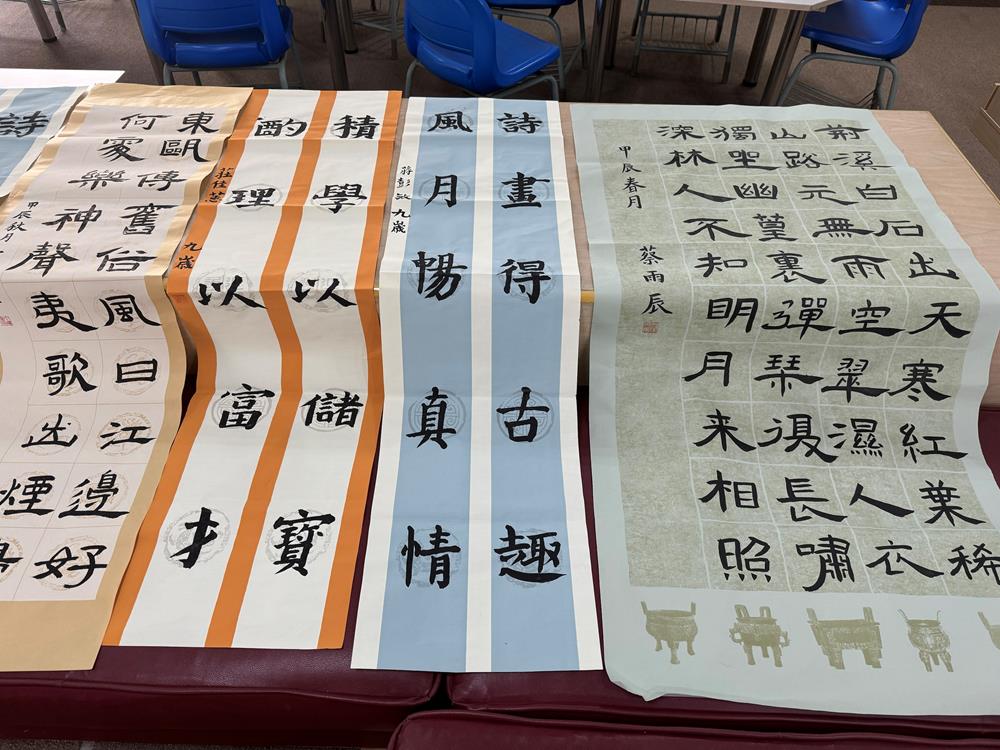 荊溪白石出天寒紅葉稀
山路元無雨空翠濕人衣
獨坐幽篁裏彈琴復長嘯
深林人不知明月来相照
甲辰春月
蔡雨辰
詩畫得古趣
風月暢真情
蔣彭 九歲
積學以儲寶
酌理以富才
莊仕 九歲
東甌傳舊俗風日江邊好
何家樂神聲夷歌出煙
甲辰秋月
詩